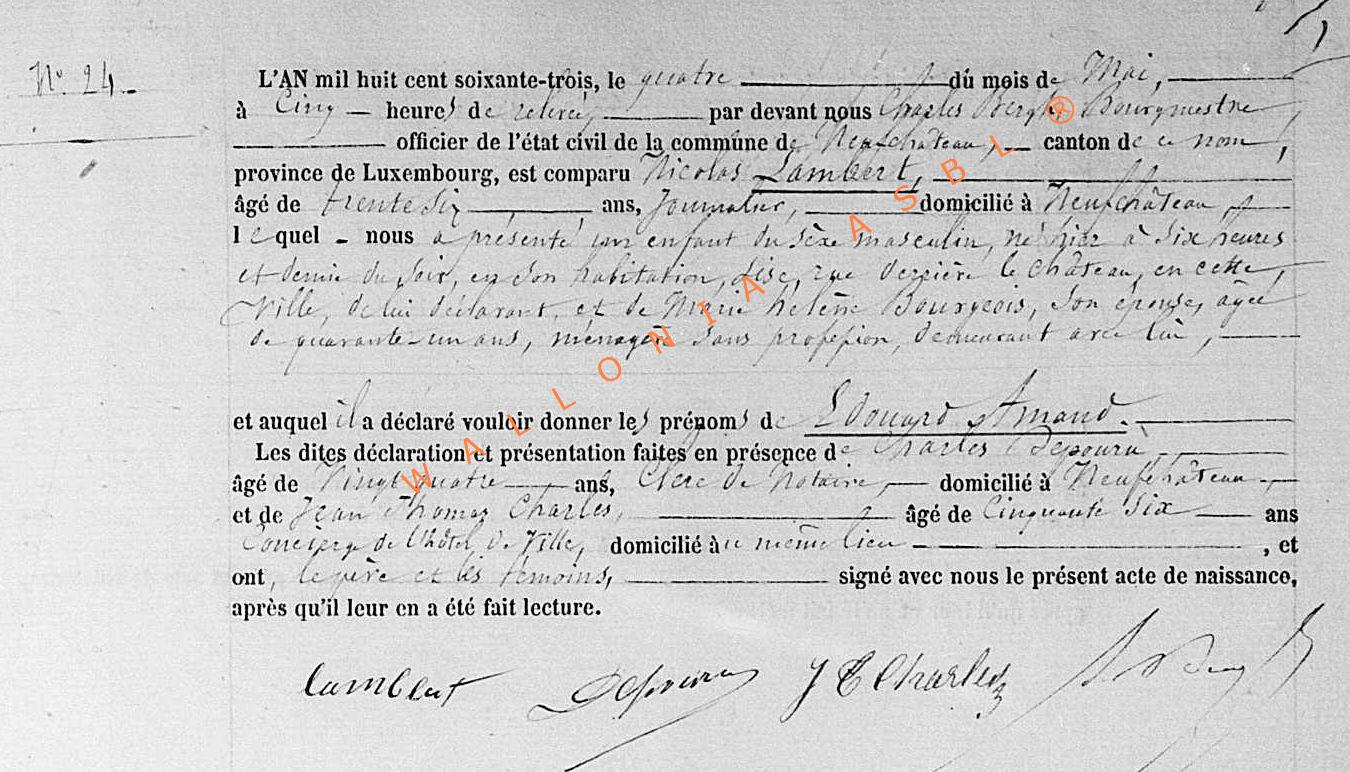 N° 24.
L'AN mil huit cent soixante-trois, le quatre du mois de Mai,
à Cinq heures de relevée, par devant nous Charles Bergh, Bourgmestre,
officier de l'état civil de la commune de Neufchâteau, canton de ce nom,
province de Luxembourg, est comparu Nicolas Lambert,
âgé de trente six ans, Journalier, domicilié à Neufchâteau,
lequel - nous a présenté un enfant du sèxe masculin, né hier à six heures
et demie du soir, en son habitation, sise, rue derrière le château, en cette
Ville, de lui déclarant, et de Marie helène Bourgeois, son épouse, âgée
de quarante-un ans, ménagère sans profession, demeurant avec lui,
et auquel il a déclaré vouloir donner les prénoms de Edouard Amand.
Les dites déclaration et présentation faites en présence de Charles Depouru
âgé de Vingt quatre ans, Clerc de Notaire, domicilié à Neufchâteau
et de Jean Thomas Charles, âgé de Cinquante six ans
Concierge de l'hôtel de Ville, domicilié au même lieu , et
ont, le père et les témoins, signé avec nous le présent acte de naissance,
après qu'il leur en a été fait lecture.
Lambert Depouru J T Charles
WALLONIA ASBL ®